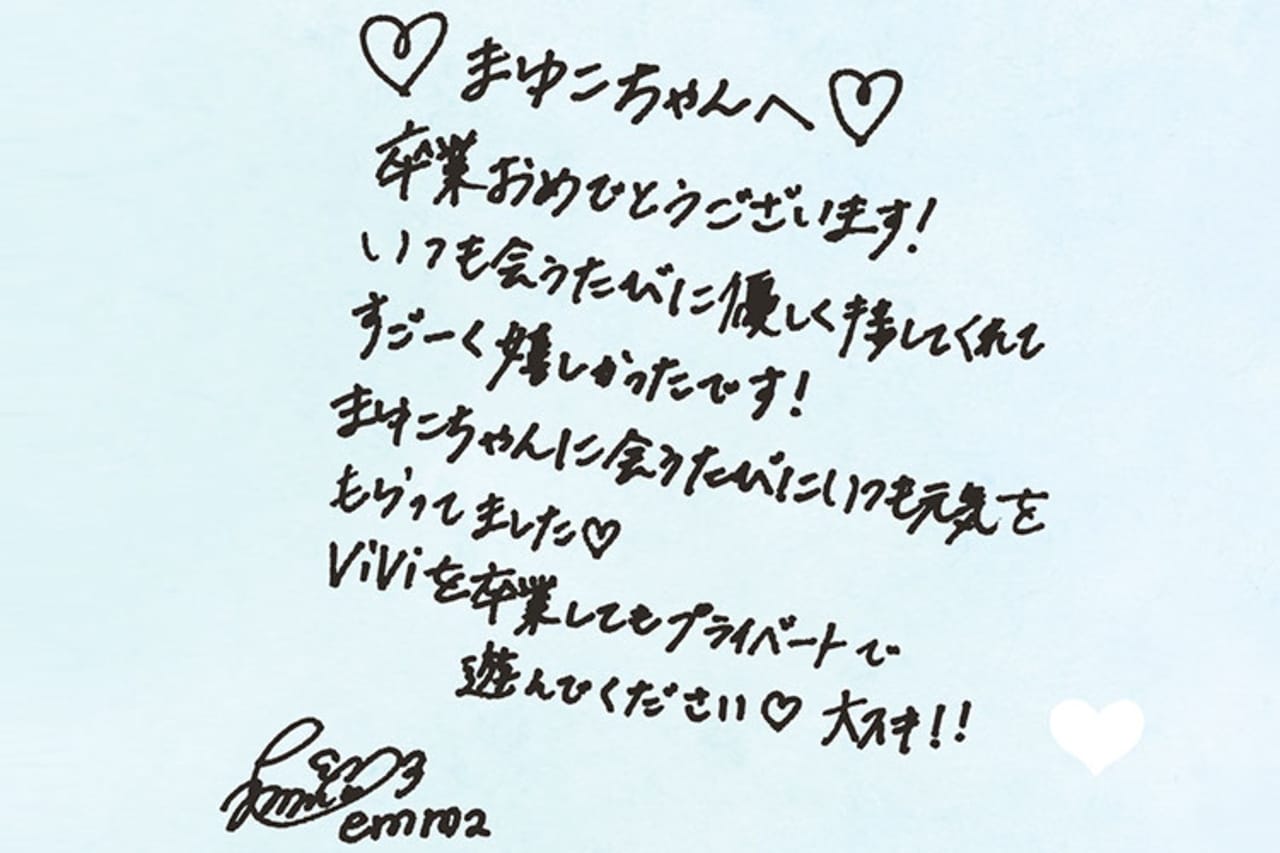 ♡まゆこちゃんへ♡
卒業おめでとうございます!
いつも会うたびに優しく接してくれて
すごーく嬉しかったです!
まゆこちゃんに会うたびにいつも元気を
もらってました♡
ViViを卒業してもプライベートで
遊んでください♡ 大スキ!!
emroa